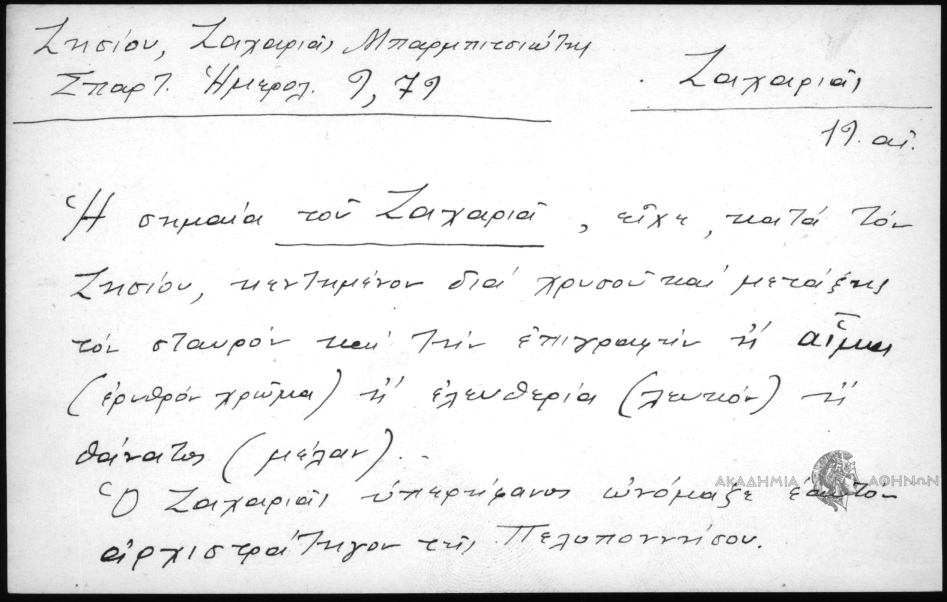 Ζησίου, Ζαχαριᾶς Μπαρμπιτσιώτης
Σπαρτ. Ἡμερολ. 9, 79
Ζαχαριᾶς
19. αἰ.
Ἡ σημαία τοῦ Ζαχαριᾶ, εἶχε, κατά τόν
Ζησίου, κεντημένον διά χρυσοῦ καί μετάξης
τόν σταυρόν καί τήν ἐπιγραφήν ἤ αἷμα
(ἐρυθρόν χρῶμα) ἤ ἐλευθερία (λευκόν) ἤ
θάνατος (μέλαν).
Ὁ Ζαχαριᾶς ὑπερήφανος ὠνόμαζε ἑαυτόν
ἀρχιστράτηγον τῆς Πελοποννήσου.
ΑΚΑΔΗΜΙΑ ΑΘΗΝΩΝ